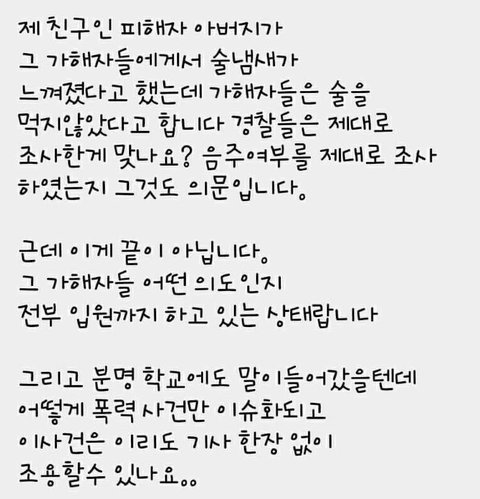 제 친구인 피해자 아버지가
그 가해자들에게서 술냄새가
느껴졌다고 했는데 가해자들은 술을
먹지않았다고 합니다 경찰들은 제대로
조사한게 맞나요? 음주여부를 제대로 조사
하였는지 그것도 의문입니다.
근데 이게 끝이 아닙니다.
그 가해자들 어떤 의도인지
전부 입원까지 하고 있는 상태랍니다
그리고 분명 학교에도 말이들어갔을텐데
어떻게 폭력 사건만 이슈화되고
이사건은 이리도 기사 한장 없이
조용할수 있나요..